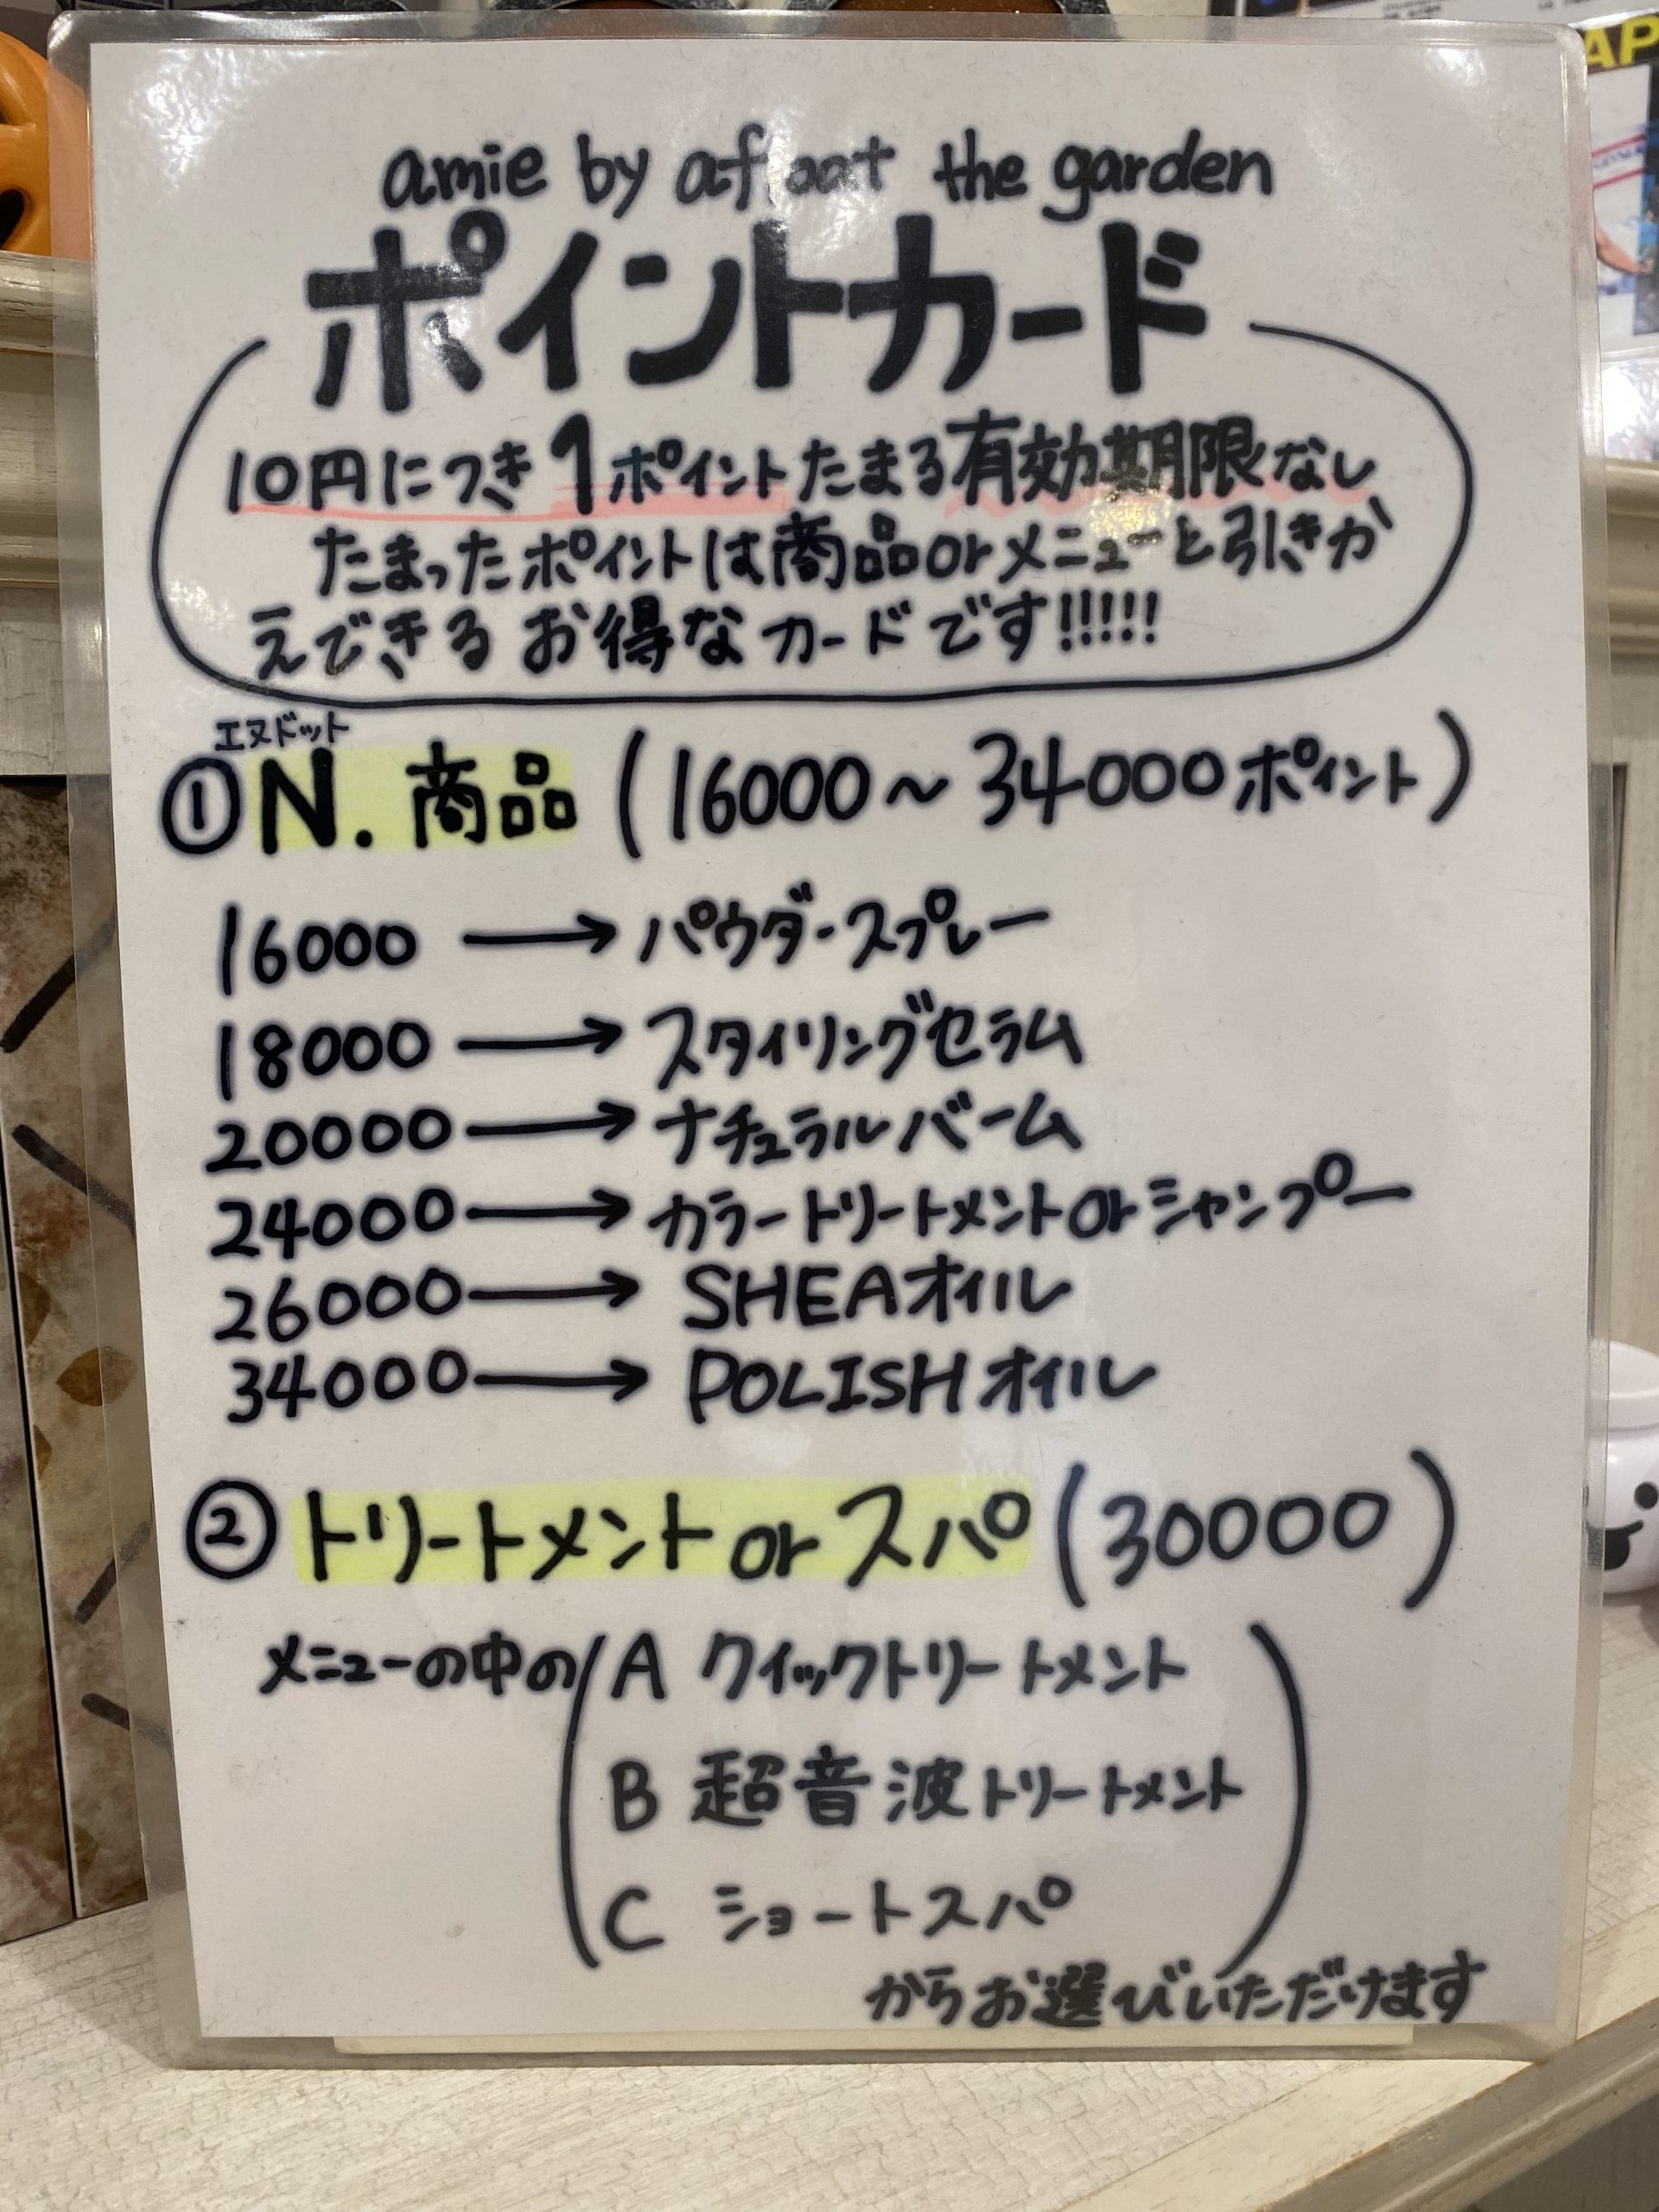 amie by afloat the garden
ポイントカード
10円につき1ポイントたまる有効期限なし
たまったポイントは商品orメニューと引きか
えできるお得なカードです!!!!!
エヌドット
①N.商品(16000～34000ポイント)
16000→パウダースプレー
18000→スタイリングセラム
20000→ナチュラルバーム
24000→カラートリートメントorシャンプー
26000→SHEAオイル
34000→POLISHオイル
②トリートメントorスパ(30000)
メニューの中の(A クイックトリートメント
B 超音波トリートメント
C ショートスパ)
からお選びいただけます
AP